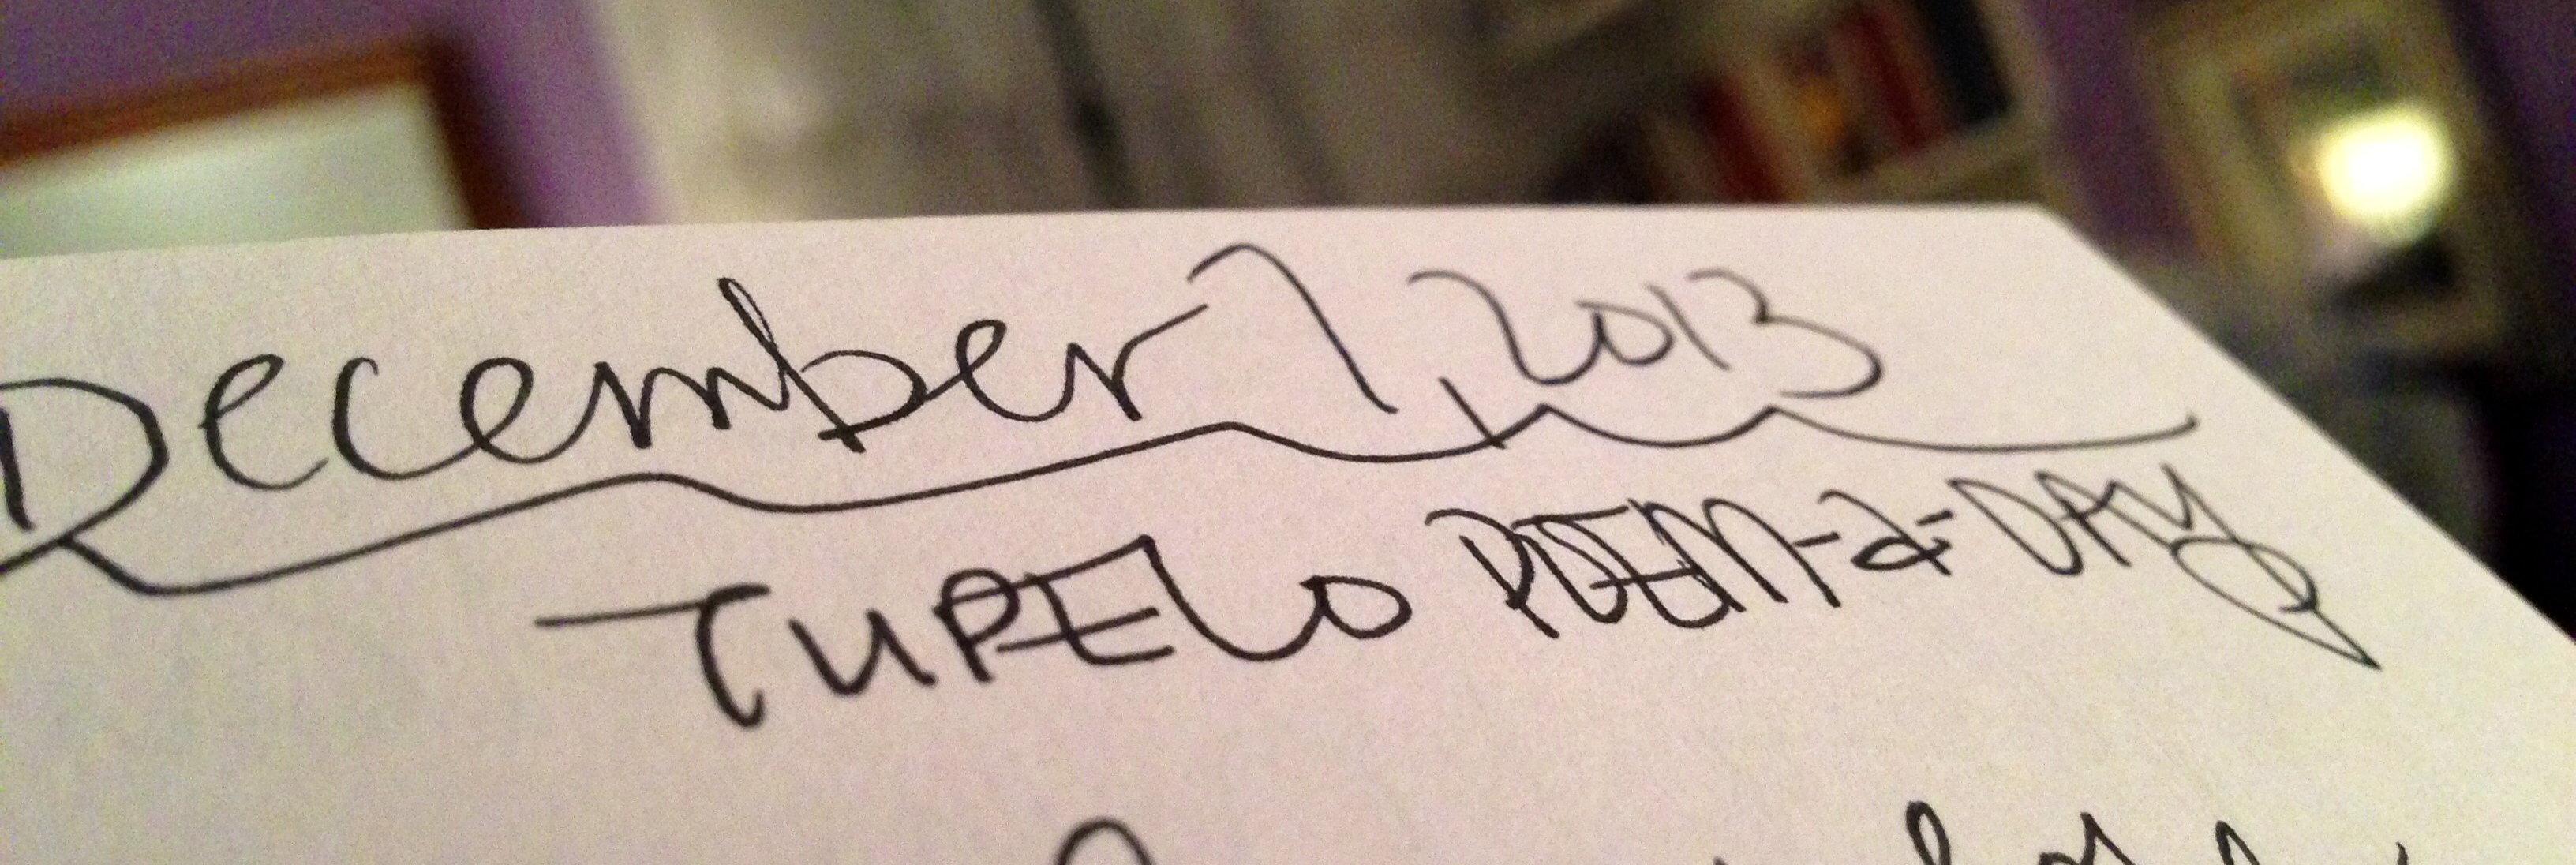 December 1, 2013
TUPELO POEM-a-DAY